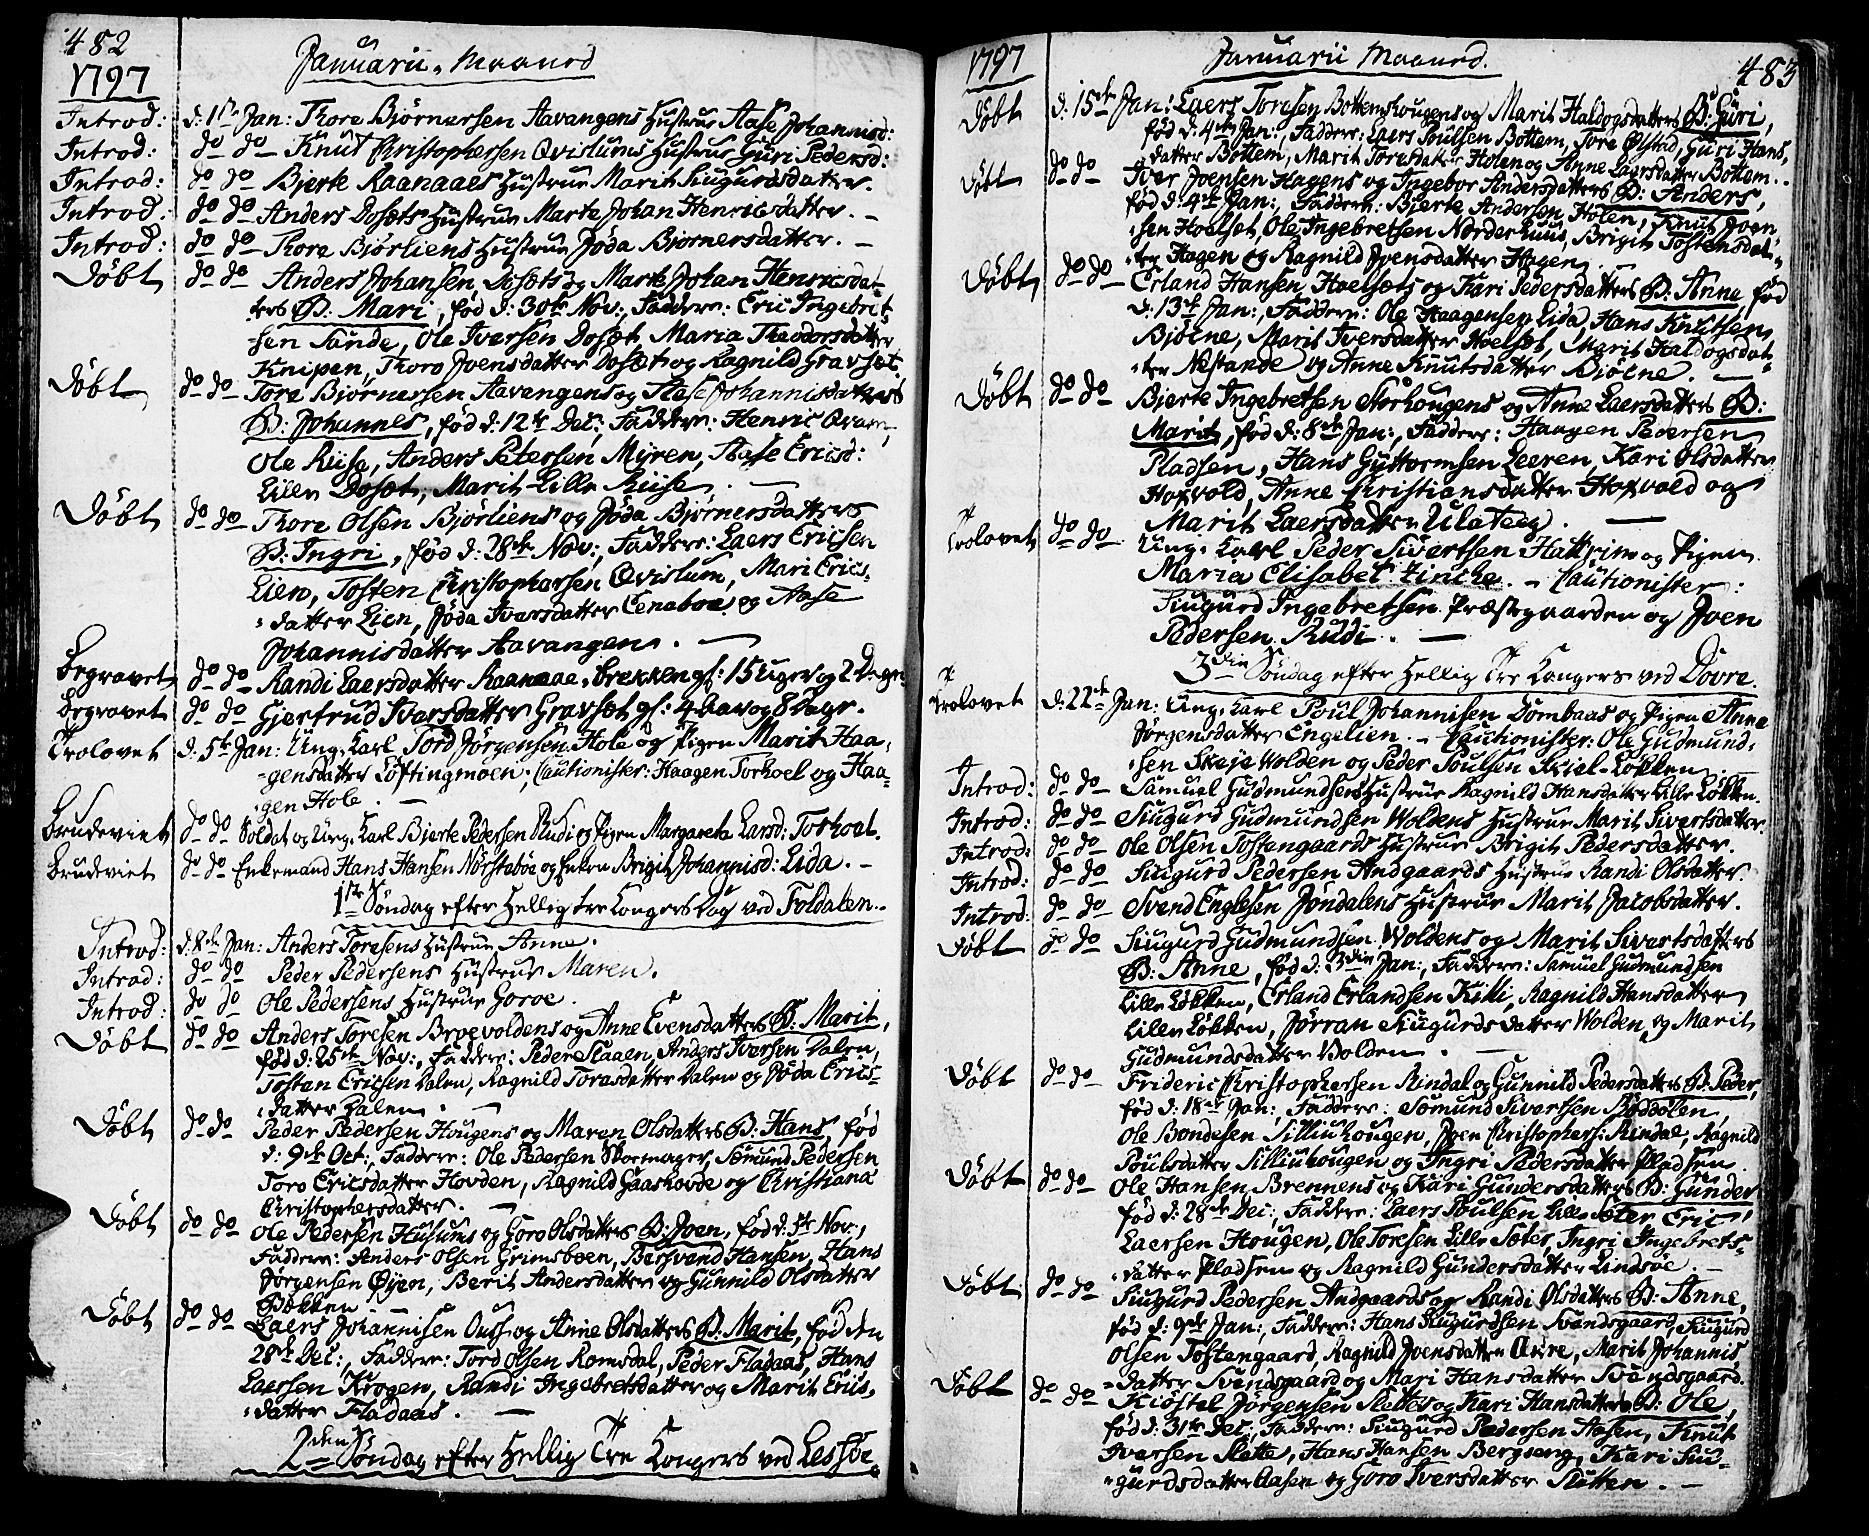 482
1797
Januarii Maaned
Introd: d: 1ste Jan: Thore Bjørnersen Aavangens Hustrue Aase Johannisd:
Introd: do do Knut Christophersen Qvislums Hustrue Guri Pedersd:
Introd: do do Bjerte Raanaaes Hustrue Marit Siugurdsdatter.
Introd: do do Anders Dosæts Hustrue Marte Johan Henricsdatter. –
Introd: do do Thore Bjørliens Hustrue Jøda Bjørnersdatter. –
Døbt do do Anders Johansen Dosæts og Marte Johan Henricsdat-
ters B: Mari, fød d: 30te Nov:, Faddere: Eric Ingebret-
sen Sande, Ole Iversen Dosæt, Maria Theodorsdatter
Knipen, Thoro Joensdatter Dosæt og Ragnild Gravset.
Døbt do do Tore Bjørnersen Aavangens og Aase Johannisdatters
B: Johannes, fød d: 12te Dec:, Faddere: Henric Qvam,
Ole Riise, Anders Petersen Myren, Aase Ericsd:
Lille Dosæt, Marit Lille Riise. –
Døbt do do Thore Olsen Bjørliens og Jøda Bjørnersdatters
B: Ingri, fød d: 28de Nov:, Faddere: Laers Ericsen
Lien, Tosten Christophersen Qvislum, Mari Erics-
datter Lien, Jøda Iversdatter Tenaboe og Aase
Johannisdatter Aavangen. –
Begravet do do Randi Laersdatter Raanaae-brekken gl: 15 uger og 2 Dage.
Begravet do do Gjertrud Iversdatter Gravset gl: 4 Aar og 8 Dage.
Trolovet d: 5te Jan: Ung-Karl Tord Jørgensen Hole og Pigen Marit Haa-
gensdatter Løftingmoen; Cautionister: Haagen Torhoel og Haa-
gen Hole. –
Brudeviet do do Soldat og Ung-Karl Bjerte Pedersen Rudi og Pigen Margareta Larsd: Torhoel.
Brudeviet do do Enkemand Hans Hansen Norstebøe og Enken Brigit Johannisd: Lida. –
1ste Søndag efter Hellig tre Kongers Dag ved Foldalen.
Introd: d: 8de Jan: Anders Toresens Hustrue Anne.
Introd: do do Peder Pedersens Hustrue Maren.
Introd: do do Ole Pedersens Hustrue Goroe.
Døbt do do Anders Toresen Broevoldens og Anne Evensdatters B: Marit,
fød d: 25de Nov:, Faddere: Peder Slaaen, Anders Iversen Dalen,
Tosten Ericsen Dalen, Ragnild Toresdatter Dalen og Jøda Erics-
datter Dalen. –
Døbt do do Peder Pedersen Hougens og Maren Olsdatters B: Hans, fød
d: 9de Oct:, Faddere: Ole Pedersen Skoemager, Sømund Pedersen
Toro Ericsdatter Hovden, Ragnild Gaashovde og Christiana
Christophersdatter. –
Døbt do do Ole Pedersen Husums og Goro Olsdatters B: Joen, fød d: 5te Nov:,
Faddere: Anders Olsen Grimsboen, Bersvend Hansen, Hans
Jørgensen Øyen, Berit Andersdatter og Gunnild Olsdatter
Bekken. –
Døbt do do Laers Johannisen Ous og Anne Olsdatters B: Marit, fød den
28de Dec:, Faddere: Tord Olsen Romsdal, Peder Fladaas, Hans
Laersen Krogen, Randi Ingebretsdatter og Marit Erics-
datter Fladaas. –
2den Søndag efter Hellig Tre Kongers ved Lessøe.
1797
Januarii Maaned.
483
Døbt d: 15de Jan: Laers Toresen Bottemshougens og Marit Haldogsdatters B: Guri,
fød d: 4de Jan:, Faddere: Laers Poulsen Bottem, Tore Ølstad, Guri Hans-
datter Bottem, Marit Toresdatter Holen og Anne Laersdatter Bottem.
Døbt do do Iver Joensen Hagens og Ingebor Andersdatters B: Anders,
fød d: 4de Jan:, Faddere: Bjerte Andersen Holen, Knut Joen-
sen Hoelset, Ole Ingebretsen Norderhuus, Brigit Tostensdat-
ter Hagen og Ragnild Joensdatter Hagen.
Døbt do do Erland Hansen Hoelsets og Kari Pedersdatters B: Anne, fød
d: 13de Jan:, Faddere: Ole Haagensen Lida, Hans Knutsen
Bjølne, Marit Iversdatter Hoelset, Marit Haldogsdat-
ter Nestande og Anne Knutsdatter Bjølne. –
Døbt do do Bjerte Ingebretsen Storhougens og Anne Laersdatters B:
Marit, fød d: 8de Jan:, Faddere: Haagen Pedersen
Pladsen, Hans Guttormsen Leeren, Kari Olsdatter
Hofvold, Anne Christiansdatter Hofvold og
Marit Laersdatter Ulateig. –
Trolovet do do Ung-Karl Peder Sivertsen Hattrim og Pigen
Maria Elisabet Lincke. – Cautionister:
Siugurd Ingebretsen Præstgaarden og Joen
Pedersen Rudi. –
3die Søndag efter Hellig Tre Kongers ved Dovre.
Trolovet d: 22de Jan: Ung-Karl Poul Johannisen Dombaas og Pigen Anne
Jørgensdatter Engelien. – Cautionister: Ole Gudmund-
sen Skejevolden og Peder Poulsen Kiel-Løkken.
Introd: do do Samuel Gudmundsens Hustrue Ragnild Hansdatter Lille Løkken.
Introd: do do Siugurd Gudmundsen Woldens Hustrue Marit Sivertsdatter.
Introd: do do Ole Olsen Tostengaards Hustrue Brigit Pedersdatter.
Introd: do do Siugurd Pedersen Andgaards Hustrue Randi Olsdatter.
Introd: do do Svend Englesen Jøndalens Hustrue Marit Jacobsdatter.
Døbt do do Siugurd Gudmundsen Woldens og Marit Sivertsdatters
B: Anne, fød d: 3die Jan:, Faddere: Samuel Gudmundsen
Lille Løkken, Erland Erlandsen Killi, Ragnild Hansdatter
Lille Løkken, Jørran Siugurdsdatter Wolden, og Marit
Gudmundsdatter Wolden. –
Døbt do do Frideric Christophersen Rindal og Gunnild Pedersdatters B: Peder,
fød d: 18de Jan:, Faddere: Sømund Sivertsen Bøddølen,
Ole Bondesen Silliuhougen, Joen Christophers: Rindal, Ragnild
Poulsdatter Silliuhougen og Ingri Pedersdatter Pladsen.
Døbt do do Ole Hansen Brennens og Kari Gundersdatters B: Gunder
fød d: 28de Dec:, Faddere: Laers Poulsen Lille Sæter, Eric
Laersen Hougen, Ole Toresen Lille Sæter, Ingri Ingebrets-
datter Pladsen og Ragnild Gundersdatter Lindsøe. –
Døbt do do Siugurd Pedersen Andgaards og Randi Olsdatters B: Anne,
fød d: 9de Jan:, Faddere: Hans Siugurdsen Svandsgaard, Siugurd
Olsen Tostengaard, Ragnild Joensdatter Qure, Marit Johannis-
datter Svendsgaard og Mari Hansdatter Svandsgaard.
Døbt do do Kiøstel Jørgensen Slettes og Kari Hansdatters B: Ole,
fød d: 31te Dec:, Faddere: Siugurd Pedersen Aasen, Knut
Iversen Slette, Hans Hansen Bergseng, Kari Siu-
gurdsdatter Aasen og Goro Iversdatter Sletten. –